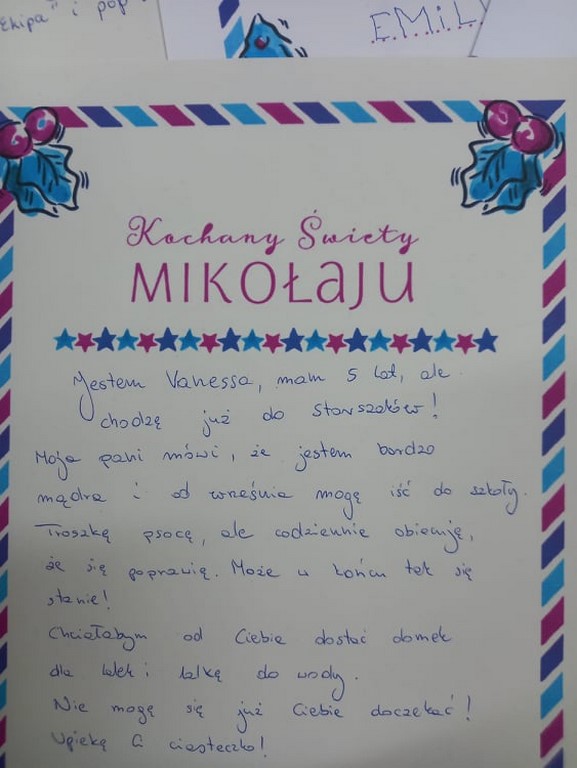 Ekipa" i pop
EMILY
Kochany Święty
MIKOŁAJU
Jestem Vanessa, mam 5 lat, ale
chodzę już do starszaków!
Moja pani mówi, że jestem bardzo
mądra i od września mogę iść do szkoły.
Troszkę psocę, ale codziennie obiecuję,
że się poprawię. Może w końcu tak się
stanie!
Chciałabym od Ciebie dostać domek
dla lalek i lalkę do wody.
Nie mogę się już Ciebie doczekać!
Upiekę Ci ciasteczka!